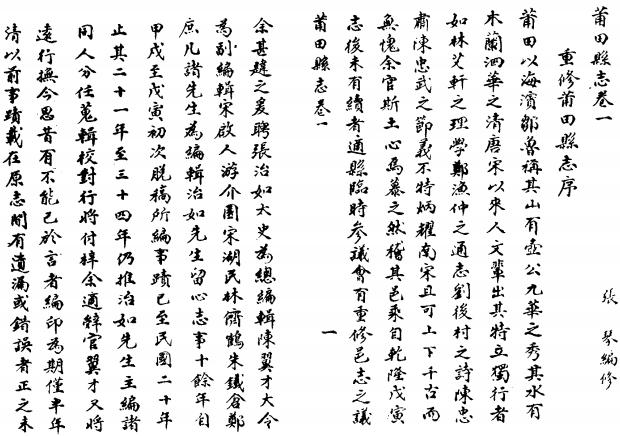 莆田縣志卷一
張琴編修
重修莆田縣志序
莆田以海濱鄒魯稱其山有壺公九華之秀其水有
木蘭泗華之清唐宋以來人文輩出其特立獨行者
如林艾軒之理學鄭漁仲之通志劉後村之詩陳忠
肅陳忠武之節義不特炳耀南宋且可上下千古而
無愧余官斯土心焉慕之然稽其邑乘自乾隆戊寅
志後未有續者適縣臨時參議會有重修邑志之議
莆田縣志卷一
一
余甚韙之爰聘張治如太史為總編輯陳翼才大令
為副編輯宋啟人游介園宋湖民林儕鶴朱鐵倉鄭
庶凡諸先生為編輯治如先生留心志事十餘年自
甲戌至戊寅初次脫稿所編事蹟已至民國二十年
止其二十一年至三十四年仍推治如先生主編諸
同人分任蒐輯校對行將付梓余適辭官翼才又將
遠行撫今思昔有不能已於言者編印為期僅半年
清以前事蹟載在原志間有遺漏或錯誤者正之未